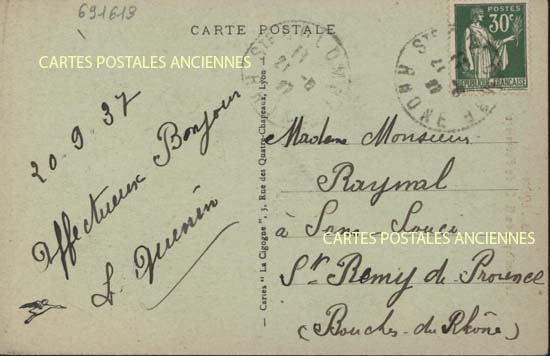 691613
CARTE POSTALE
POSTES
30c
REPUBLIQUE FRANÇAISE
RHONE
CARTES POSTALES ANCIENNES
20 9 37
Affectueux Bonjour
L. Quenin
Cartes "La Cigogne", 3, Rue des Quatre-Chapeaux, Lyon
Madame Monsieur
Raynal
à Sans-Souci
CARTES POSTALES ANCIENNES
St Remy de Provence
(Bouches-du-Rhône)